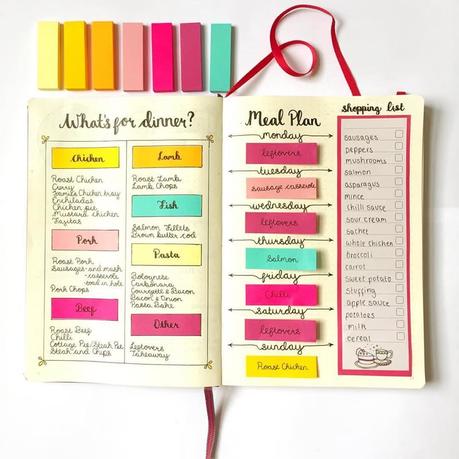 What's for dinner?
Chicken
Roast Chicken
Curry
Chicken tray
Enchiladas
Chicken pie
Mustard chicken
Fajitas
Pork
Roast Pork
Sausages - and mash
- casserole
- toad in hole
Pork Chops
Beef
Roast Beef
Chilli
Cottage Pie/Steak Pie
Steak and Chips
Lamb
Roast Lamb
Lamb Chops
Fish
Salmon Fillets
Pasta
Bolognese
Carbonara
Courgette & Bacon
Bacon & Onion
Pasta Bake
Other
Leftovers
Takeaway
Meal Plan
monday
leftovers
tuesday
sausage casserole
wednesday
leftovers
thursday
Salmon
friday
Chilli
saturday
leftovers
sunday
Roast Chicken
shopping list
sausages
peppers
mushrooms
salmon
asparagus
mince
chilli sauce
sour cream
sachet
whole chicken
broccoli
carrot
sweet potato
stuffing
apple sauce
potatoes
milk
cereal